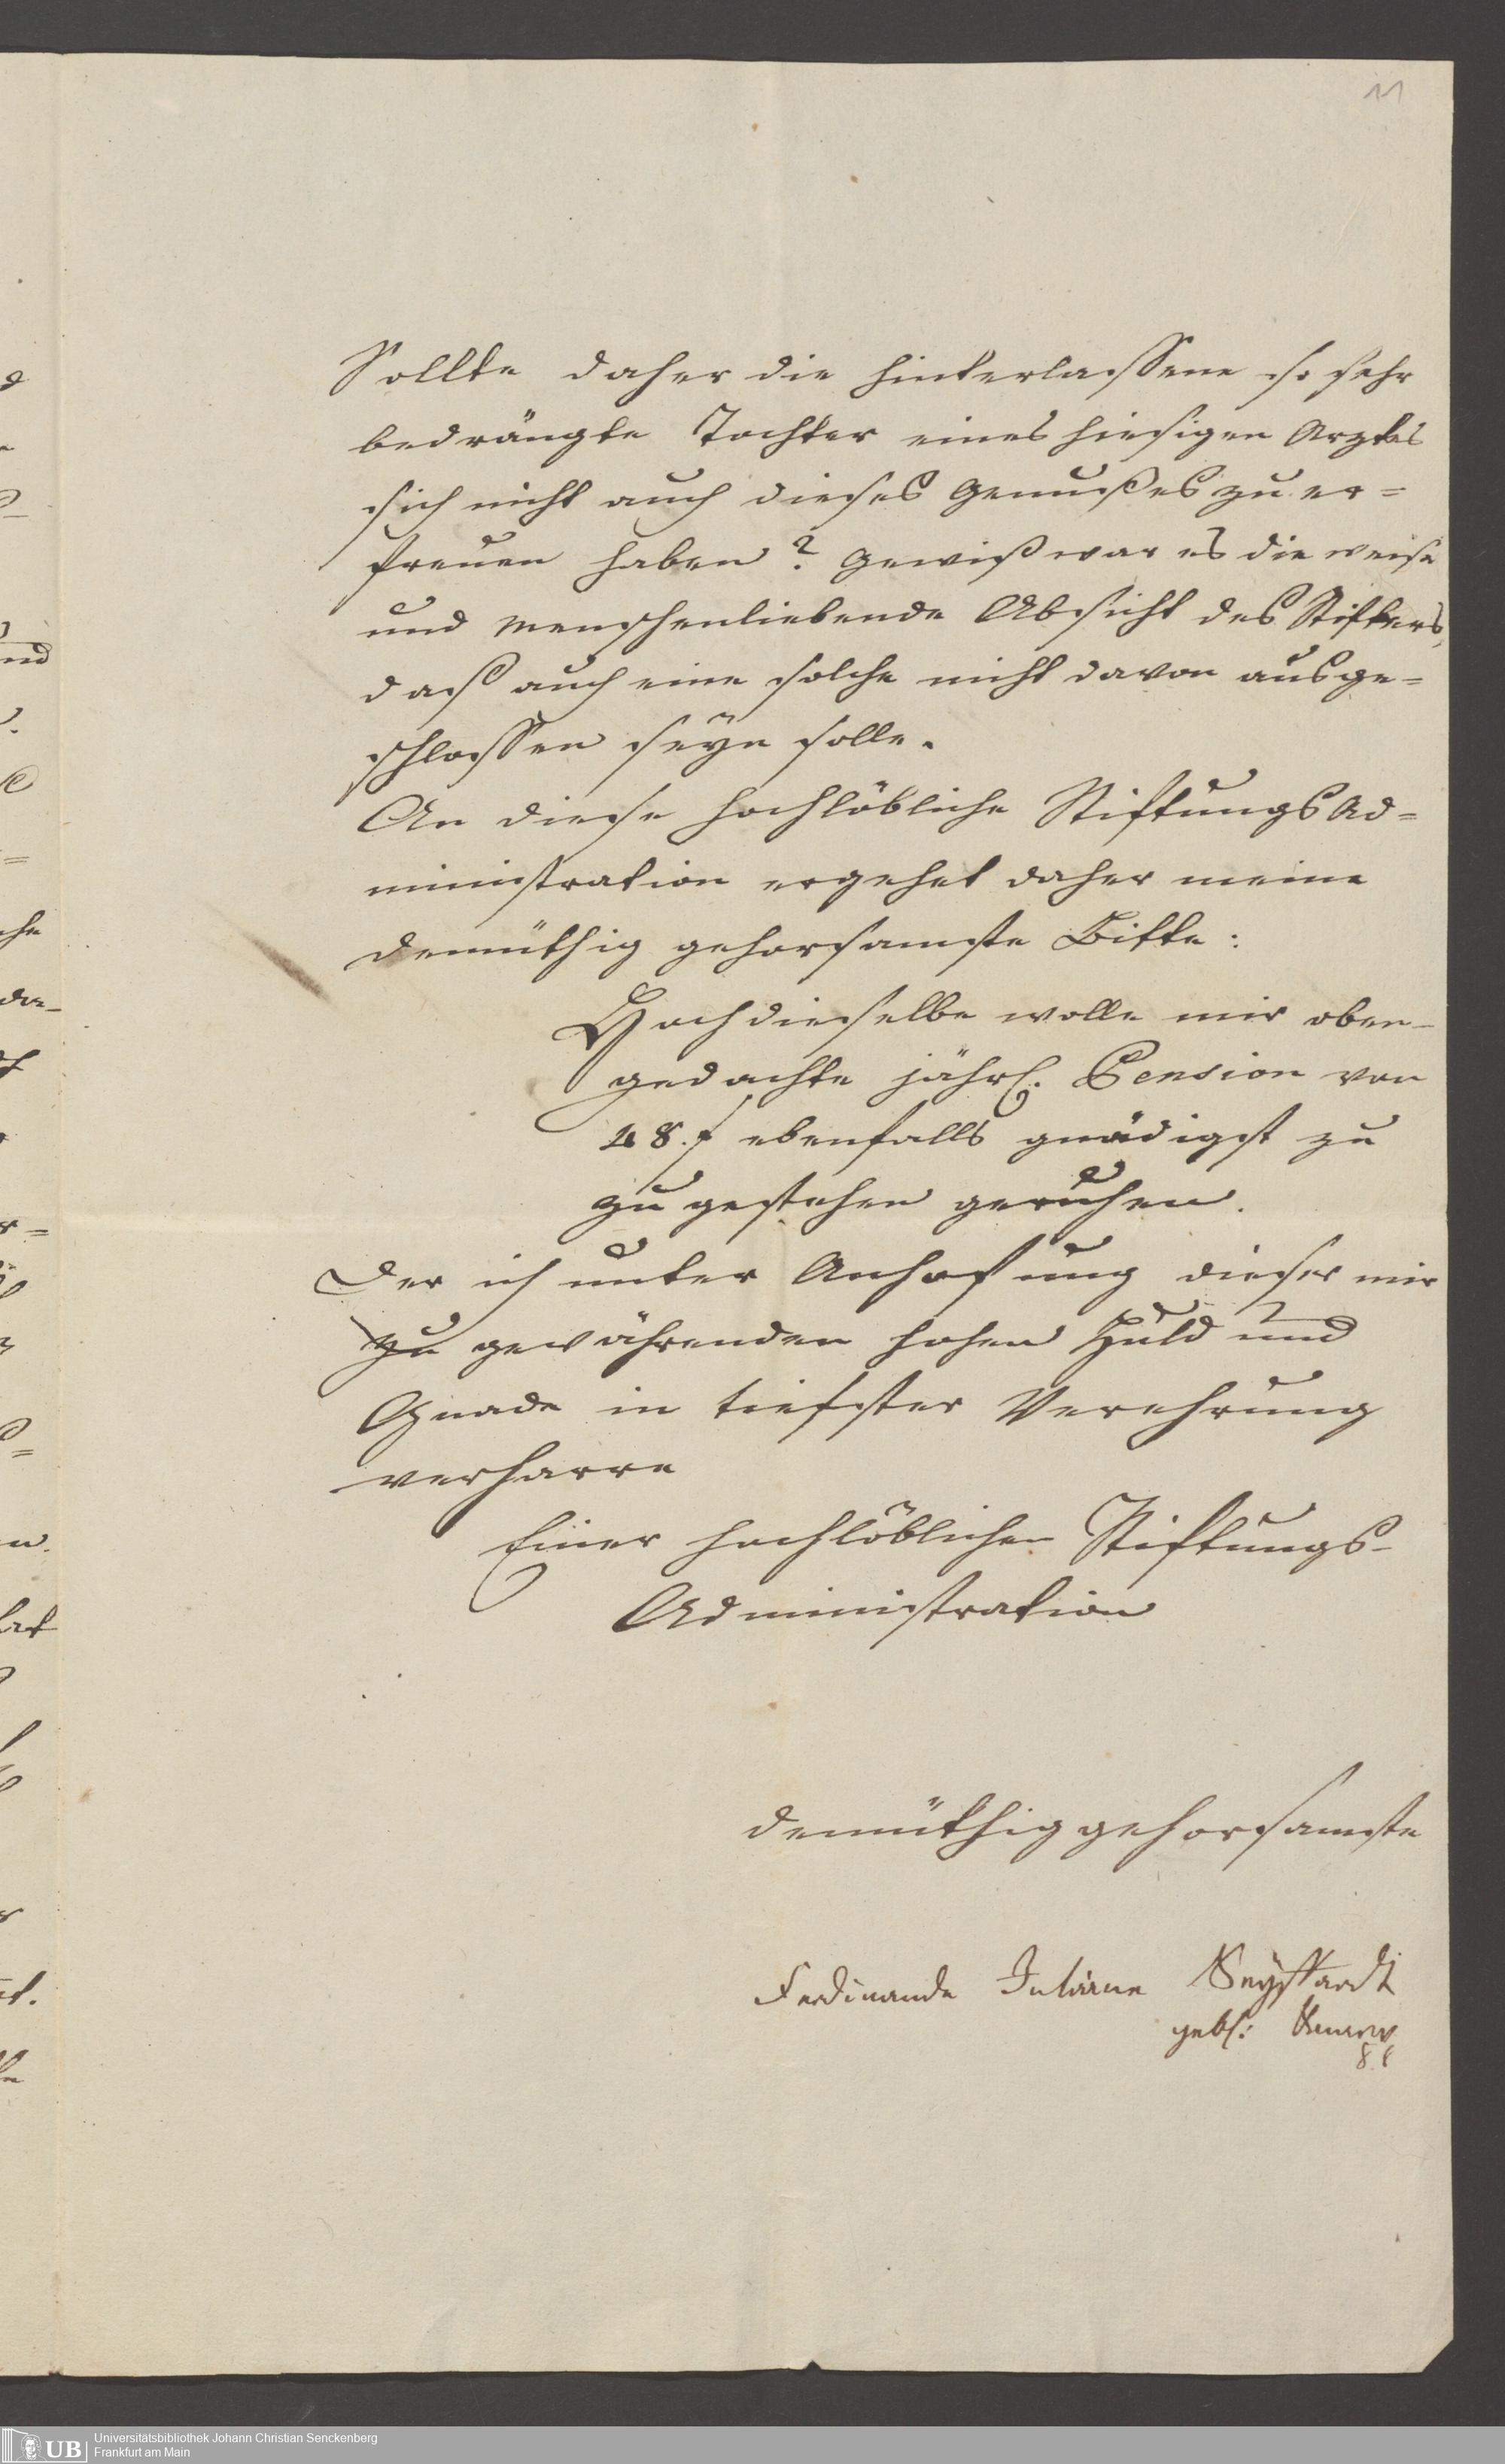 11
Sollte daher die hinterlassene so sehr
bedrängte Tochter eines hiesigen Arztes
sich nicht auch dieses Genußes zu er=
freuen haben? Gewiß war es die weise
und menschenliebende Absicht des Stifters,
daß auch eine solche nicht davon ausge=
schlossen seyn solle.
An diese hochlöbliche Stiftungs Ad=
ministration ergehet daher meine
demüthig gehorsamste Bitte:
Hochdieselbe wolle mir oben-
gedachte jährl. Pension von
48.f ebenfalls gnädigst zu
zu gestehen geruhen.
Der ich unter Anhofung dieser mir
zu gewährenden hohen Huld und
Gnade in tiefster Verehrung
verharre
Einer hochlöblichen Stiftungs-
Administration
demüthig gehorsamste
Ferdinande Juliane Seyffardt
gebl:
Universitätsbibliothek Johann Christian Senckenberg
Frankfurt am Main
UB